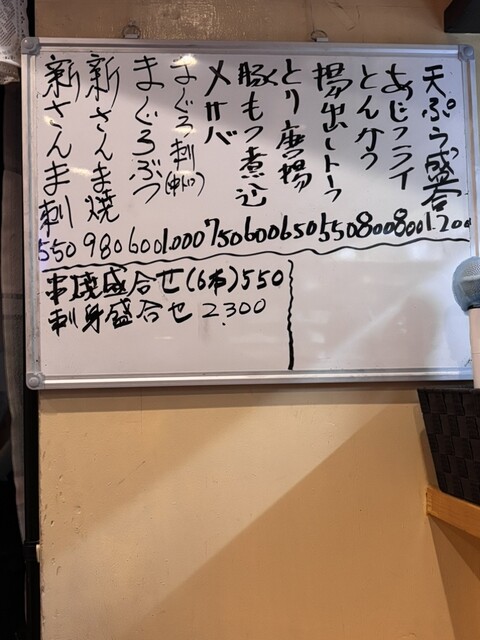 天ぷら盛合 1.200
あじフライ 800
とんかつ 800
揚出しトーフ 550
とり唐揚 650
豚もつ煮込 600
〆サバ 750
まぐろ刺(中トロ) 1.000
まぐろぶつ 600
新さんま焼 980
新さんま刺 550
串焼盛合せ(6本)550
刺身盛合せ 2.300